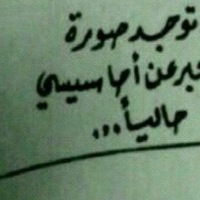 توجد صورة
عبر عن أحاسيسي
حالياً...